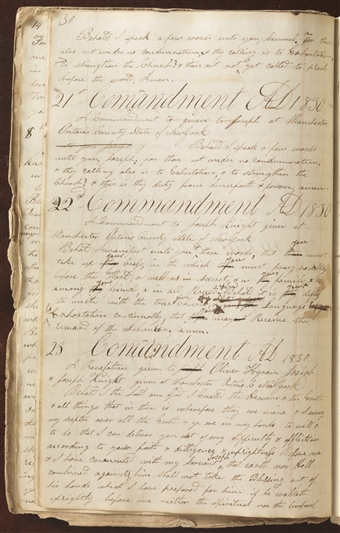 30
Behold I speak a few words unto you Samuel for thou
also art under no condemnation & thy calling is to Exhortation
& to strengthen the Church & thou art not as yet called to preach
before the world, Amen.
21st Commandment AD 1830
A Commandment to given to Joseph at Manchester
Ontario County State of New York
Behold I speak a few words
unto you, Joseph, for thou art under no condemnation,
& thy calling also is to Exhortation, & to strengthen the
Church & this is thy duty from henceforth & forever, amen.
22nd Commandment AD 1830
A Commandment to Joseph Knight given at
Manchester Ontario County State of New York
Behold I manifest unto you these words, that you must
take up your Cross, in the which you must pray vocally
before the world as well as in secret, & in your family, &
among your friends, & in all places & Behold it is your duty
to unite with the true Church & give your language to
Exhortation continually, that you may Receive the
reward of the Laborer, amen.
23 Commandment AD 1830
A Revelation given to Oliver Hyram Joseph
& Joseph Knight given at Manchester Ontario C New York
Behold I the Lord am God I Created the Heavens & the Earth
& all things that in them is wherefore they are mine & I sway
my scepter over all the Earth & ye are in my hands to will &
to do that I can deliver you out of every difficulty & affliction
according to your faith & diligence & uprightness Before me
& I have covenanted with my Servent Joseph that earth nor Hell
combined against him shall not take the Blessing out of
his hands which I have prepared for him if he walketh
uprightly before me neither the spiritual nor the temporal